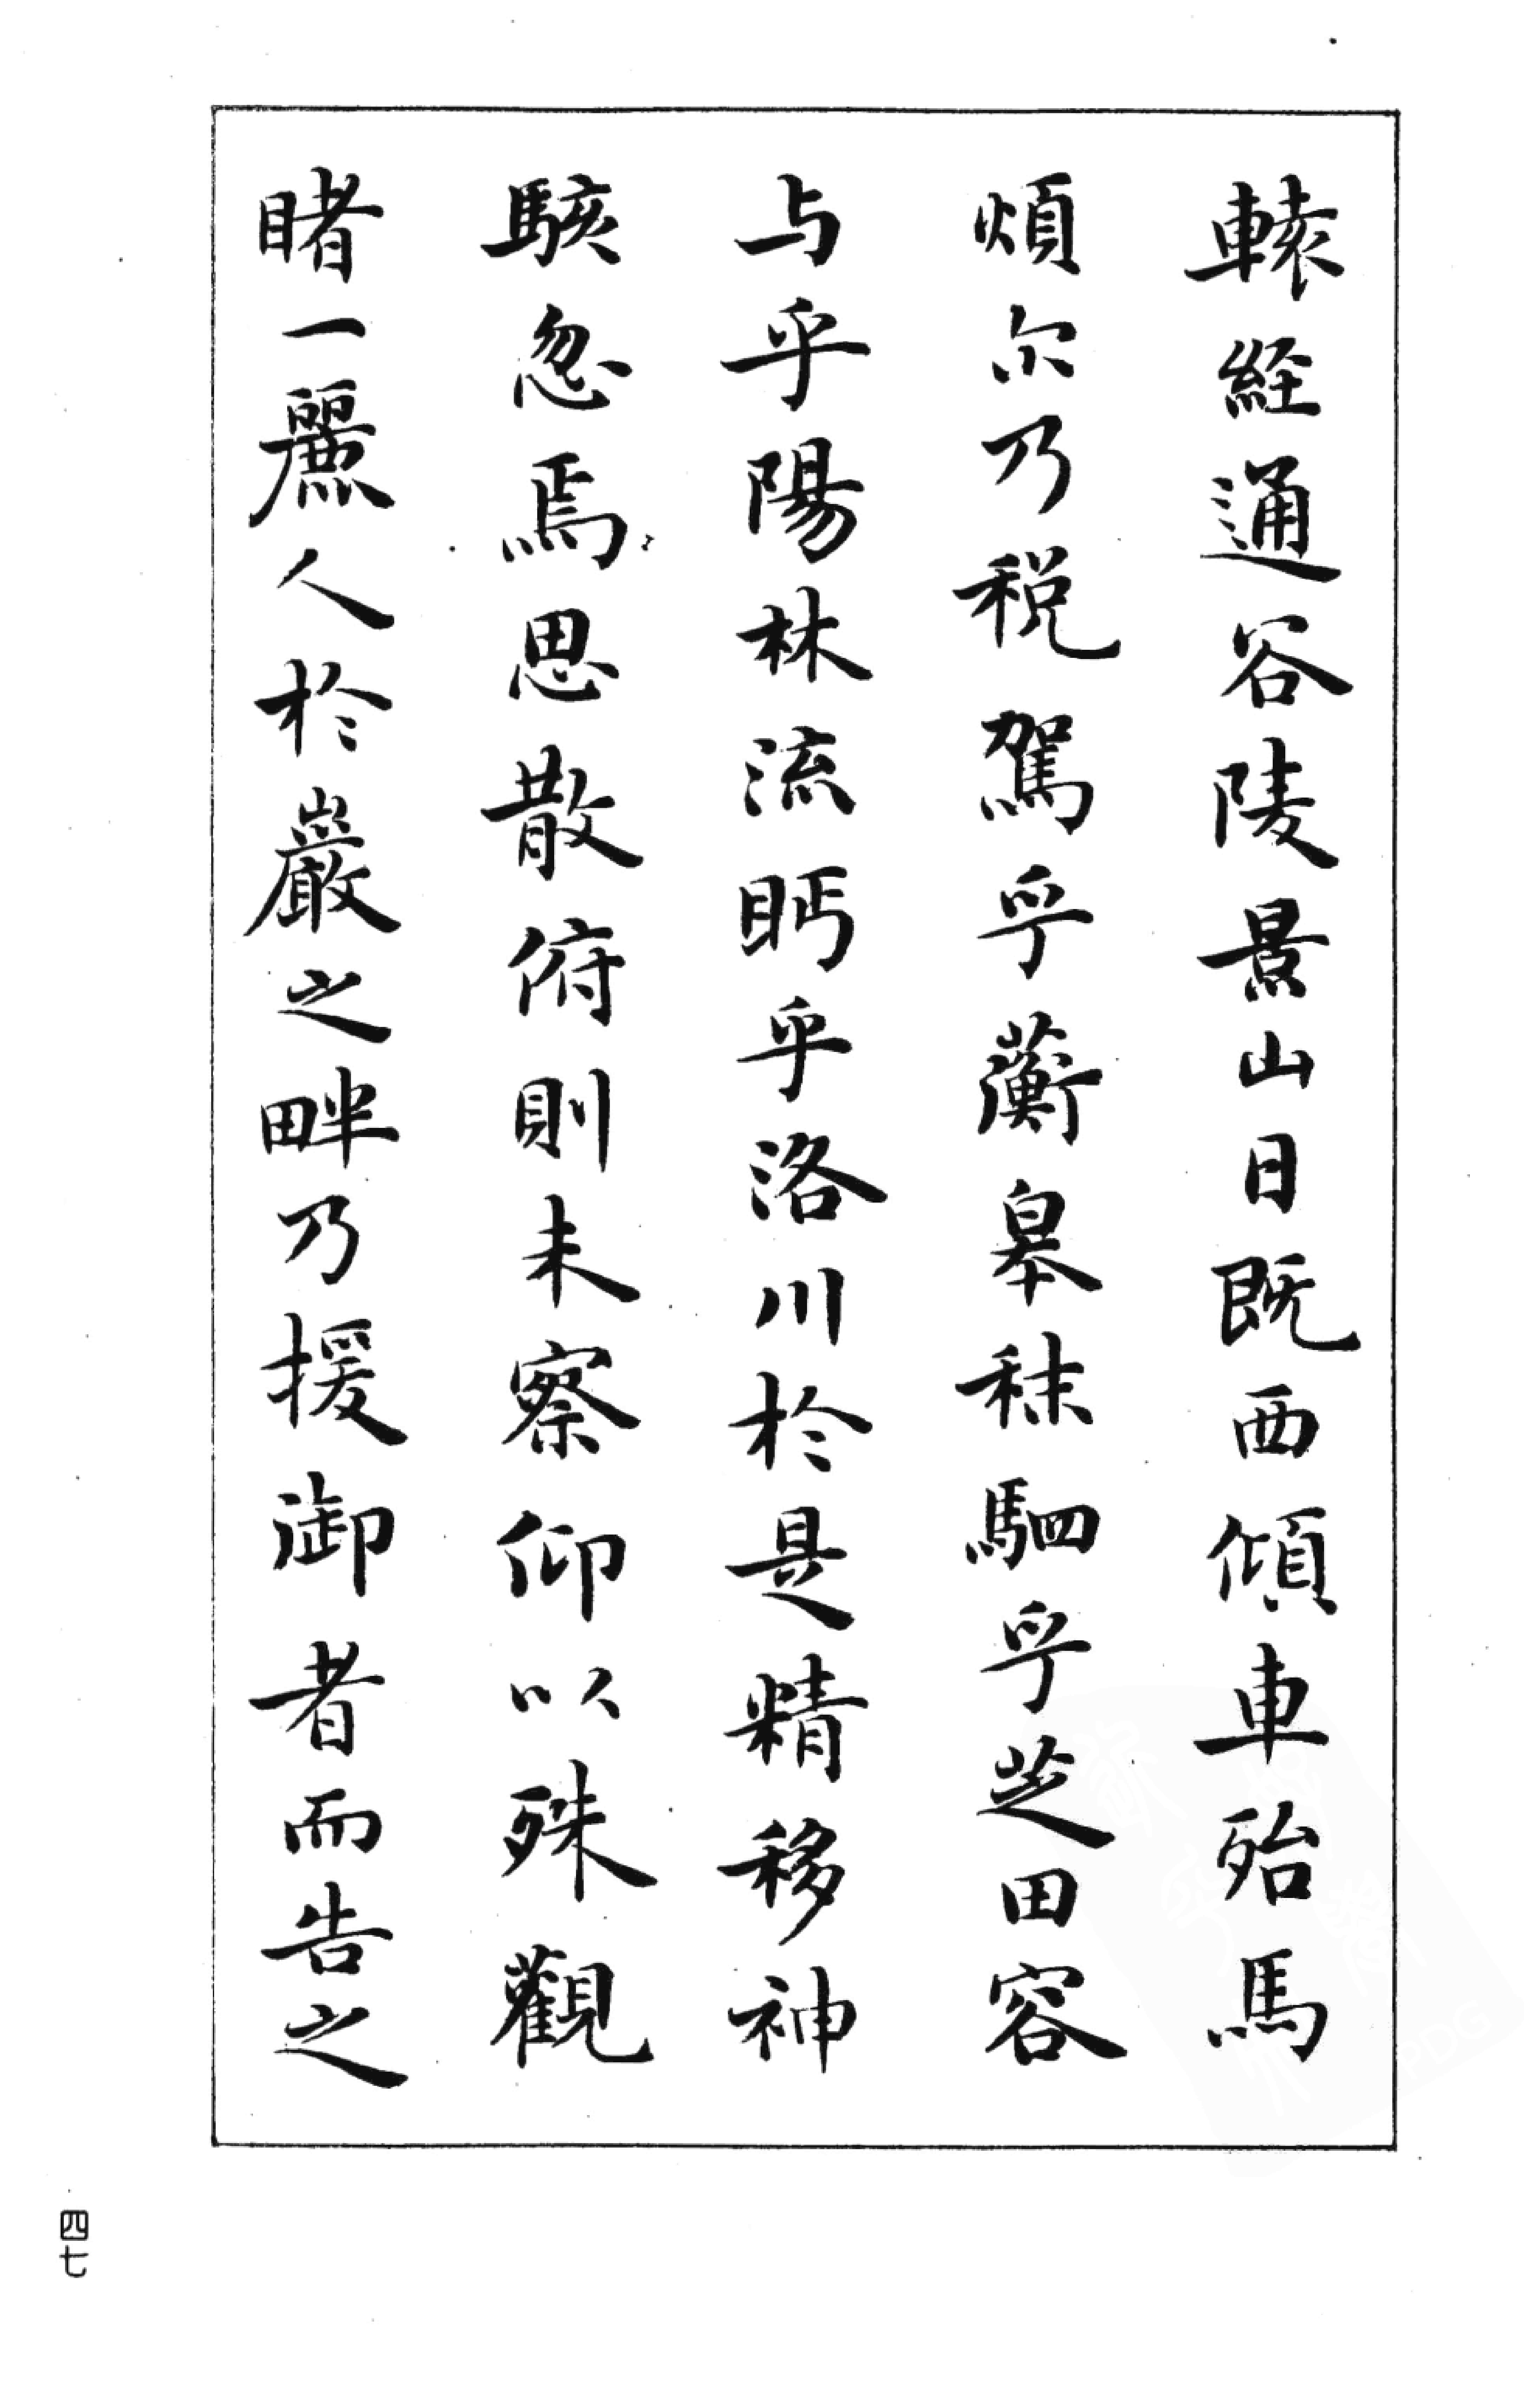 轅經通谷陵景山日既西傾車殆馬
煩尔乃税駕乎蘅皋秣駟乎芝田容
与乎陽林流眄乎洛川於是精移神
駭忽焉思散俯則未察仰以殊觀
睹一麗人於巖之畔乃援御者而告之
四七